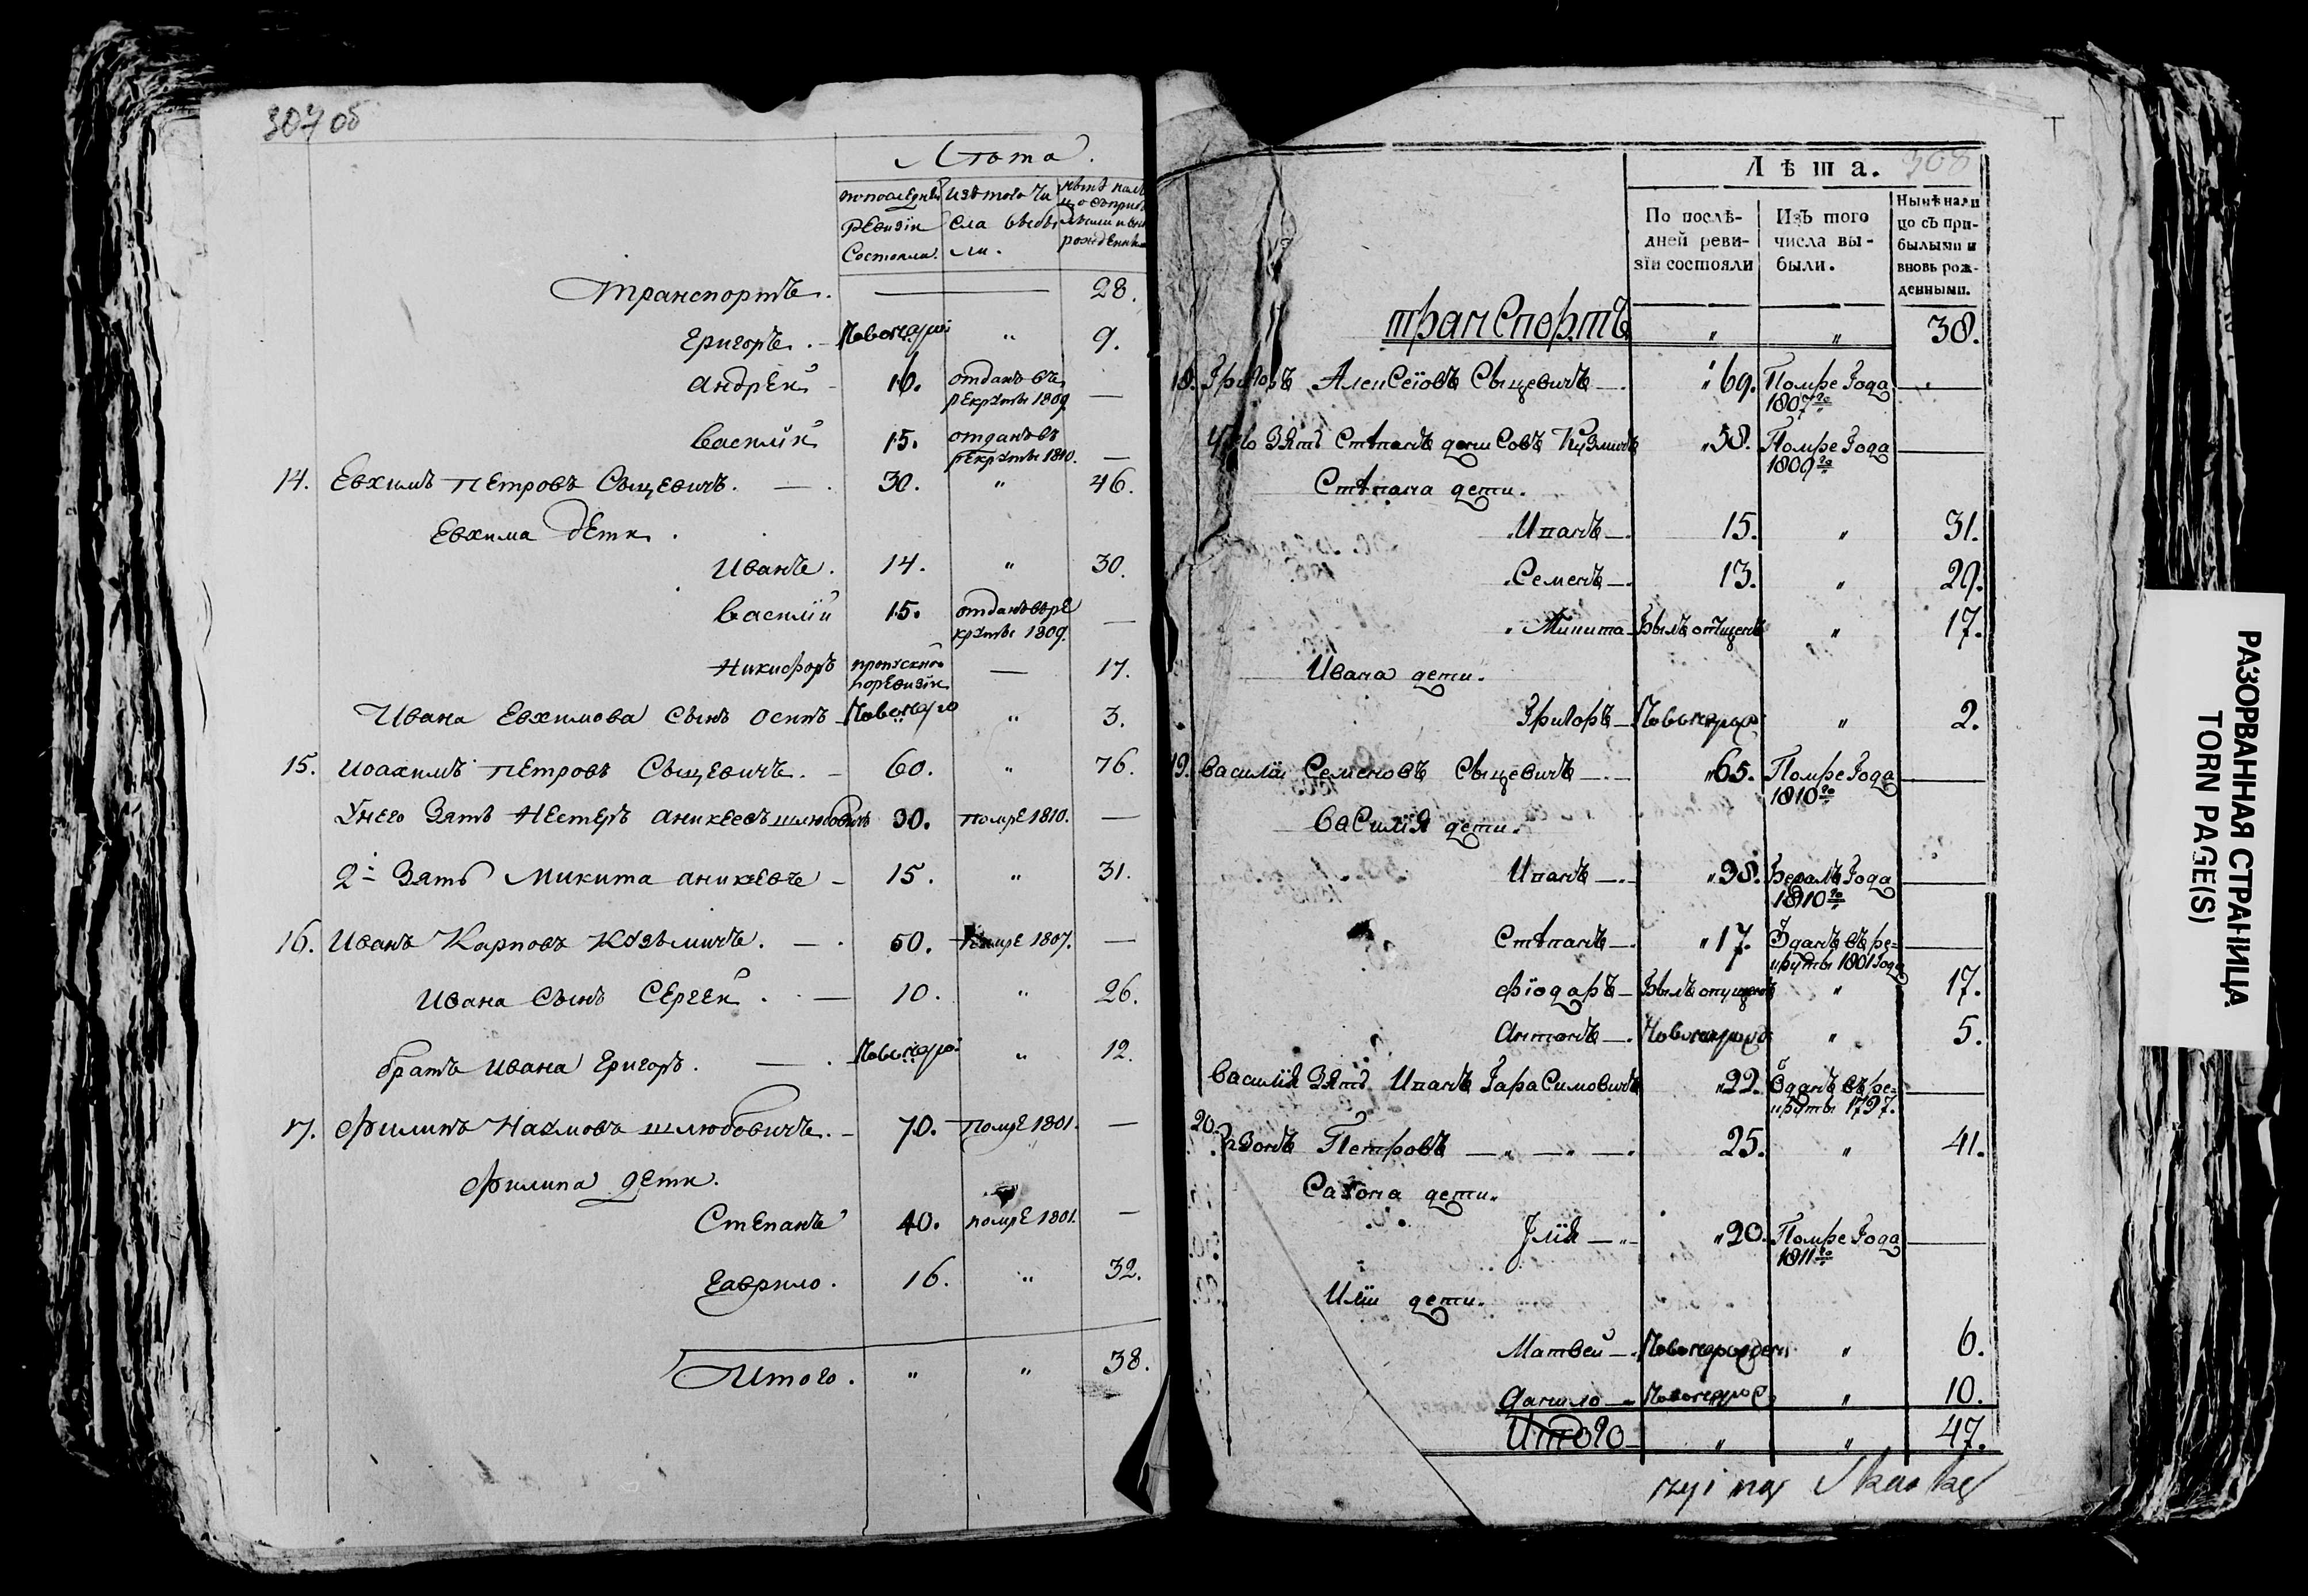 307 об
Лѣта.
по последней ревизіи состояли.
Изъ того числа выбыли.
Транспортъ. — 28.
Григоръ. Новорож „ 9.
Андрей 16. отданъ въ рекруты 1809. —
Василий 15. отданъ въ рекруты 1810. —
14. Евхимъ Петровъ Сыцевичъ. 30. „ 46.
Евхима дети.
Иванъ. 14. „ 30.
Василий 15. отданъ въ рекруты 1809. —
Никифоръ — 17.
Ивана Евхимова сынъ Осипъ Новорож „ 3.
15. Иоахимъ Петровъ Сыцевичъ. 60. „ 76.
У него зять Нестеръ Аникеевъ шлюбовичъ 30. помре 1810. —
2й зять Микита Аникеевъ 15. „ 31.
16. Иванъ Карповъ Кузьмичъ. 50. помре 1807. —
Ивана сынъ Сергей. 10. „ 26.
братъ Ивана Григоръ. Новорож „ 12.
17. Филипъ Наумовъ шлюбовичъ. 70. помре 1801. —
Филипа дети.
Степанъ 40. помре 1801. —
Гаврило. 16. „ 32.
Итого. „ „ 38.
308
Лѣта.
По послѣдней ревизіи состояли
Изъ того числа выбыли.
Нынѣ на лицо съ прибылыми и вновь рожденными.
транспортъ „ „ 38.
18. Григоръ Алексѣовъ Сыцевичъ „69. Помре Года 1807го —
У его зять Стѣпанъ денисовъ Кузмичъ „58. Помре Года 1809го —
Стѣпана дети.
Иванъ 15. „ 31.
Семенъ 13. „ 29.
Микита „ 17.
Ивана дети.
Григоръ Новорож „ 2.
19. Василій Семеновъ Сыцевичъ „65. Помре Года 1810го —
Василія дети.
Иванъ „38. Бежалъ Года 1810го —
Стѣпанъ „17. Зданъ въ рекруты 1801 Года —
Фіодаръ Былъ опущенъ „ 17.
Антонъ Новорожд „ 5.
Василія зять Иванъ Гарасимовичъ „22. Зданъ въ рекруты 1797. —
20. Петровъ 25. „ 41.
дети.
Илія „20. Помре Года 1811го —
Иліи дети.
Матвей Новорожден „ 6.
Данило Новорожд „ 10.
Итого „ „ 47.
РАЗОРВАННАЯ СТРАНИЦА
TORN PAGE(S)